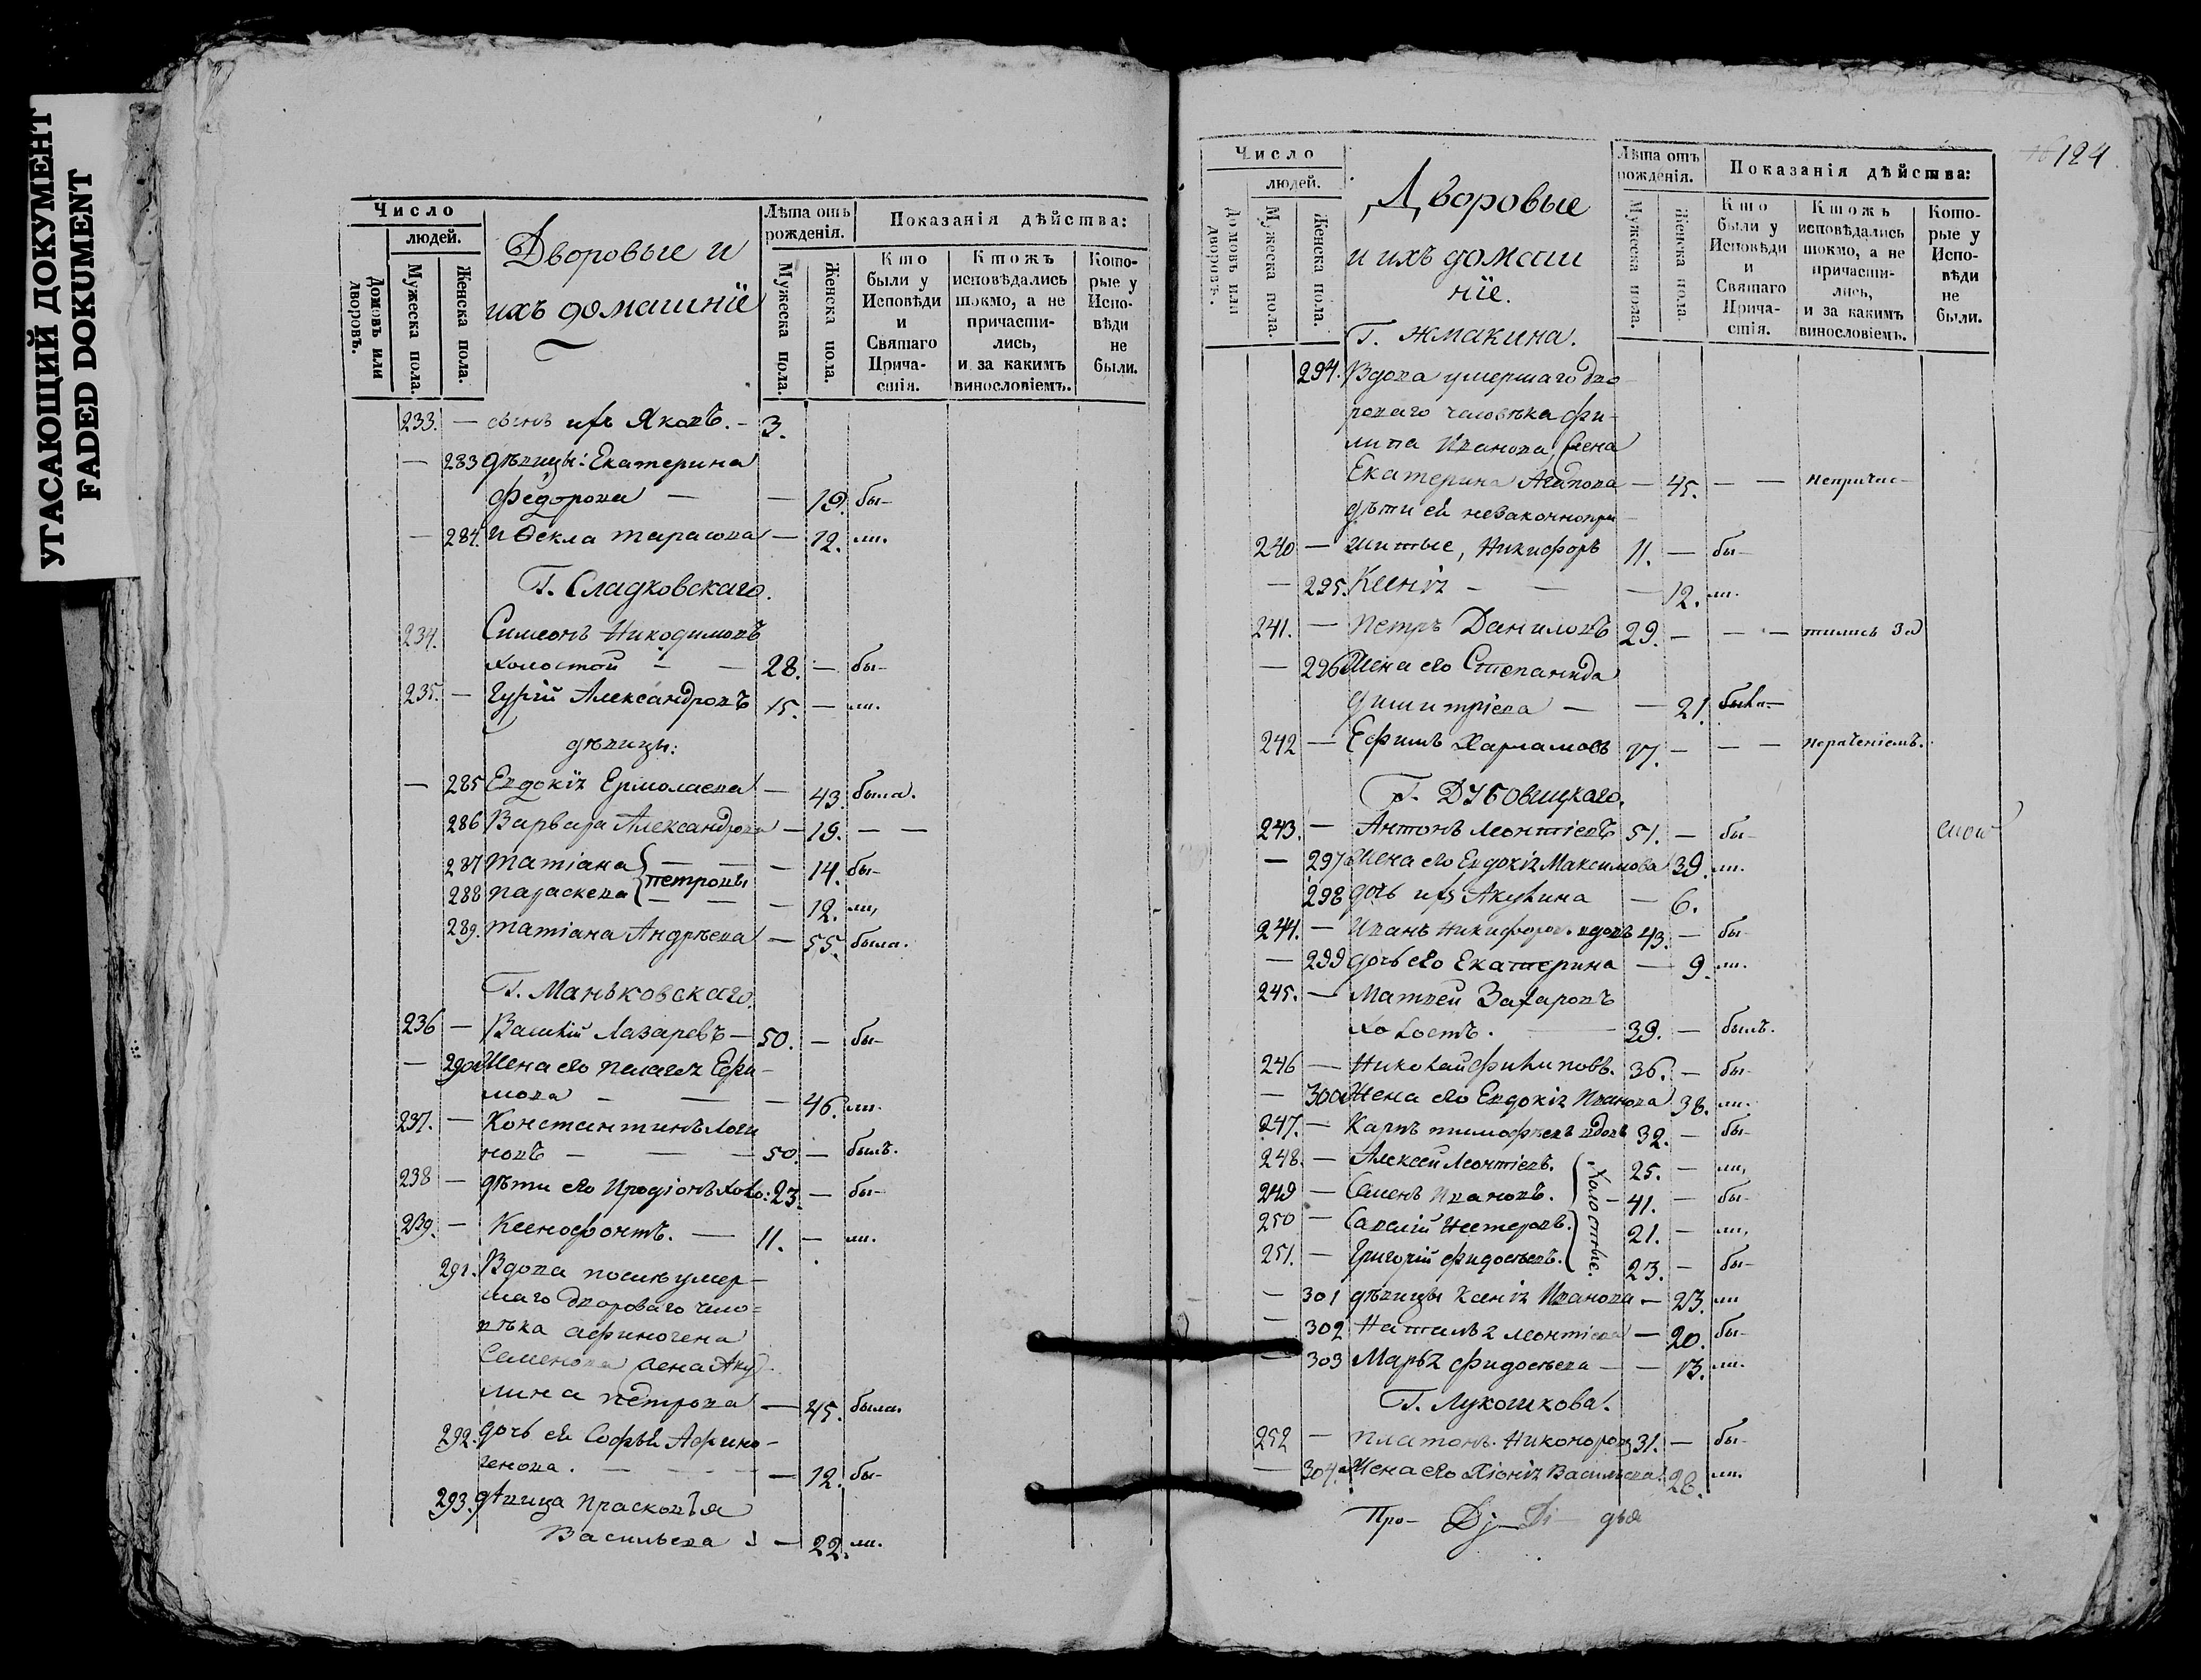 УГАСАЮЩИЙ ДОКУМЕНТ
FADED DOKUMENT
Число
людей.
Домовъ или дворовъ.
Мужеска пола.
Женска пола.
Дворовые и
ихъ домашніе
Лѣта отъ рожденія.
Мужеска пола.
Женска пола.
Показанія дѣйства:
Кто были у Исповѣди и Святаго Прича-стія.
Ктожъ исповѣдались токмо, а не причасти-лись, и за какимъ винословіемъ.
Кото-рые у Испо-вѣди не были.
233. — сынъ ихъ Яковъ. - 3.
— 283 дѣвицы: Екатерина
Федорова — — 19. бы-
— 284. и Ѳекла Тарасова — 12. ли.
Г. Сладковскаго.
234. Симеонъ Никодимовъ
холостой — — 28. — бы-
235. — Гурій Александровъ 15. — ли.
дѣвицы:
— 285 Евдокія Ермолаева — 43. была.
286 Варвара Александрова — 19. — —
287 Татіана — — — 14. бы-
Петровы
288 Параскева — — — 12. ли,
289. Татіана Андрѣева — 55. была.
Г. Маньковскаго.
236 — Василій Лазаревъ — 50. — бы-
— 290 Жена его Пелагея Ефи-
мова — — — 46. ли.
237. — Константинъ Логи
новъ — — — 50. — былъ.
238 — дѣти его Иродіонъ холо: 23. — бы-
239. — Ксенофонтъ. — 11. — ли.
291. Вдова послѣ умер-
шаго двороваго чело=
вѣка Афиногена
Семенова жена Аку
лина Петрова — 45. была.
292. дочь ея Софья Афино-
генова. — — — — 12. бы-
293. дѣвица Прасковья
Васильева — 22. ли.
124
Число
людей.
Домовъ или дворовъ.
Мужеска пола.
Женска пола.
Дворовые
и ихъ домаш
ніе.
Лѣта отъ рожденія.
Мужеска пола.
Женска пола.
Показанія дѣйства:
Кто были у Исповѣди и Святаго Прича-стія.
Ктожъ исповѣдались токмо, а не причасти-лись, и за какимъ винословіемъ.
Кото-рые у Испо-вѣди не были.
Г. Жмакина.
294. Вдова умершаго дво-
роваго человѣка Фи-
липа Иванова, жена
Екатерина Агапова — 45. — — непричас-
дѣти ея незаконнопри-
240 — житые, Никифоръ 11. — бы-
— 295. Ксенія — — — 12. ли.
241. — Петръ Даниловъ 29. — — — тились за
— 296 Жена его Степанида
Димитріева — — 21. была
242 — Ефимъ Харламовъ 17. — — — нераченіемъ.
Г. Дубовицкаго.
243. — Антонъ Леонтіевъ 51. — бы-
— 297 Жена его Евдокія Максимова 39. ли.
298 дочь ихъ Акулина — 6.
244. — Иванъ Никифоров. вдовъ 43. — бы-
— 299 дочь его Екатерина — 9. ли.
245. — Матвей Захаровъ
холостъ. — 39. — былъ.
246 — Николай Филиповъ. 36. — бы-
— 300 Жена его Евдокія Иванова 38. ли.
247. — Карпъ Тимофѣевъ вдовъ 32. — бы-
248. — Алексей Леонтіевъ. 25. — ли,
249 — Семенъ Ивановъ. — 41. — бы-
холостые.
250 — Савелій Нестеровъ. 21. — ли,
251. — Григорій Фидосѣевъ. 23. — бы-
— 301 дѣвицы Ксенія Иванова — 23. ли
— 302 Наталья Леонтіева — 20. бы-
— 303 Марья Фидосѣева — — 13. ли.
Г. Лукошкова.
252 — Платонъ Никоноровъ 31. — бы-
— 304. Жена его Хіонія Васильева. 28. ли.
Про-